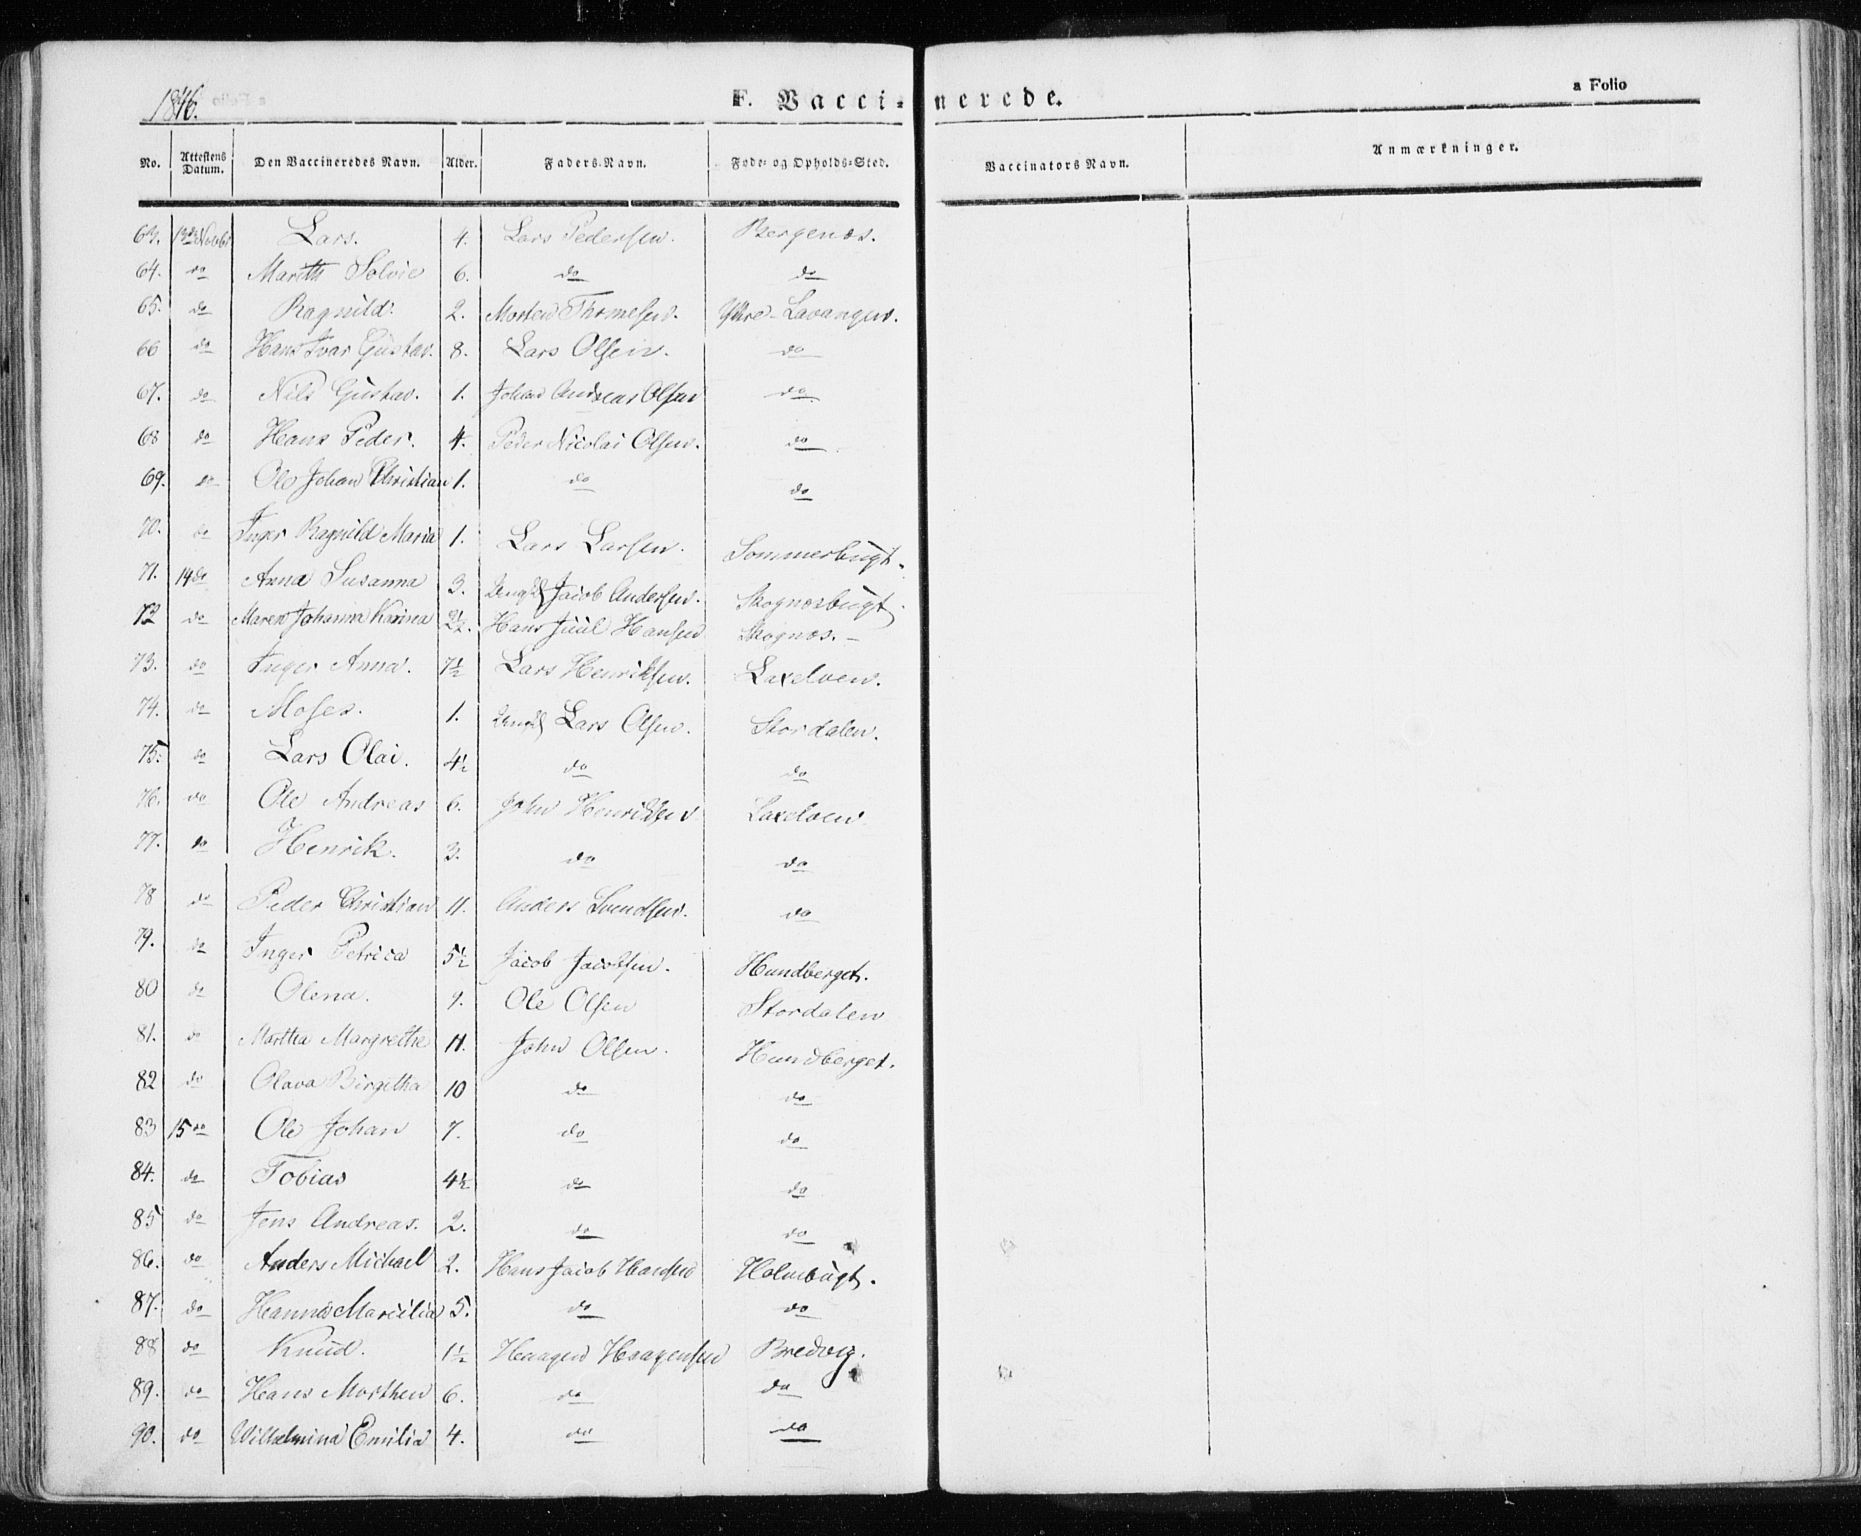 1846.
F. Vaccinerede.
a Folio
No. Attestens Datum. Den Vaccineredes Navn. Alder. Faders-Navn. Føde- og Opholds-Sted. Vaccinators Navn. Anmærkninger.
63. 13de Novbr Lars. 4. Lars Pedersen. Bergenæs.
64. do Marith Solvie 6. do do
65. do Ragnild. 2. Morten Thomesen. Øvre-Lavangen.
66 do Hans Ivar Gustav. 8. Lars Olsen. do
67. do Nils Gustav. 1. Johan Andreas Olsen do
68 do Hans Peder. 4. Peder Nicolai Olsen. do
69. do Ole Johan Christian 1. do do
70. do Inger Ragnild Maria 1. Lars Larsen. Sommerbugt.
71. 14 do Anna Susanna 3. Jacob Andersen. Skognæsbugt.
72 do Maren Johanna Karina 2½. Hans Juul Hansen Skognæs.
73. do Inger Anna. 7½ Lars Henriksen. Laxelven.
74. do Moses. 1. Lars Olsen. Stordalen.
75. do Lars Olai. 4½ do do
76. do Ole Andreas 6. John Henriksen Laxelven
77. do Henrik. 3. do do
78 do Peder Christian 11. Anders Svendsen. do
79. do Inger Petrica 5½ Jacob Jacobsen. Hundberget.
80 do Olena. 9. Ole Olsen Stordalen
81. do Martha Margrethe 11. John Olsen. Hundberget.
82 do Olava Birgitha 10 do do
83 15 do Ole Johan 7. do do
84. do Tobias 4½ do do
85 do Jens Andreas. 2. do do
86. do Anders Michael 2. Hans Jacob Hansen Holmbugt.
87. do Hanna Marcilia 5. do do
88 do Knud. 1½ Haagen Haagensen Bredvig.
89. do Hans Morthen 6. do do
90. do Wilhelmina Emilia 4. do do